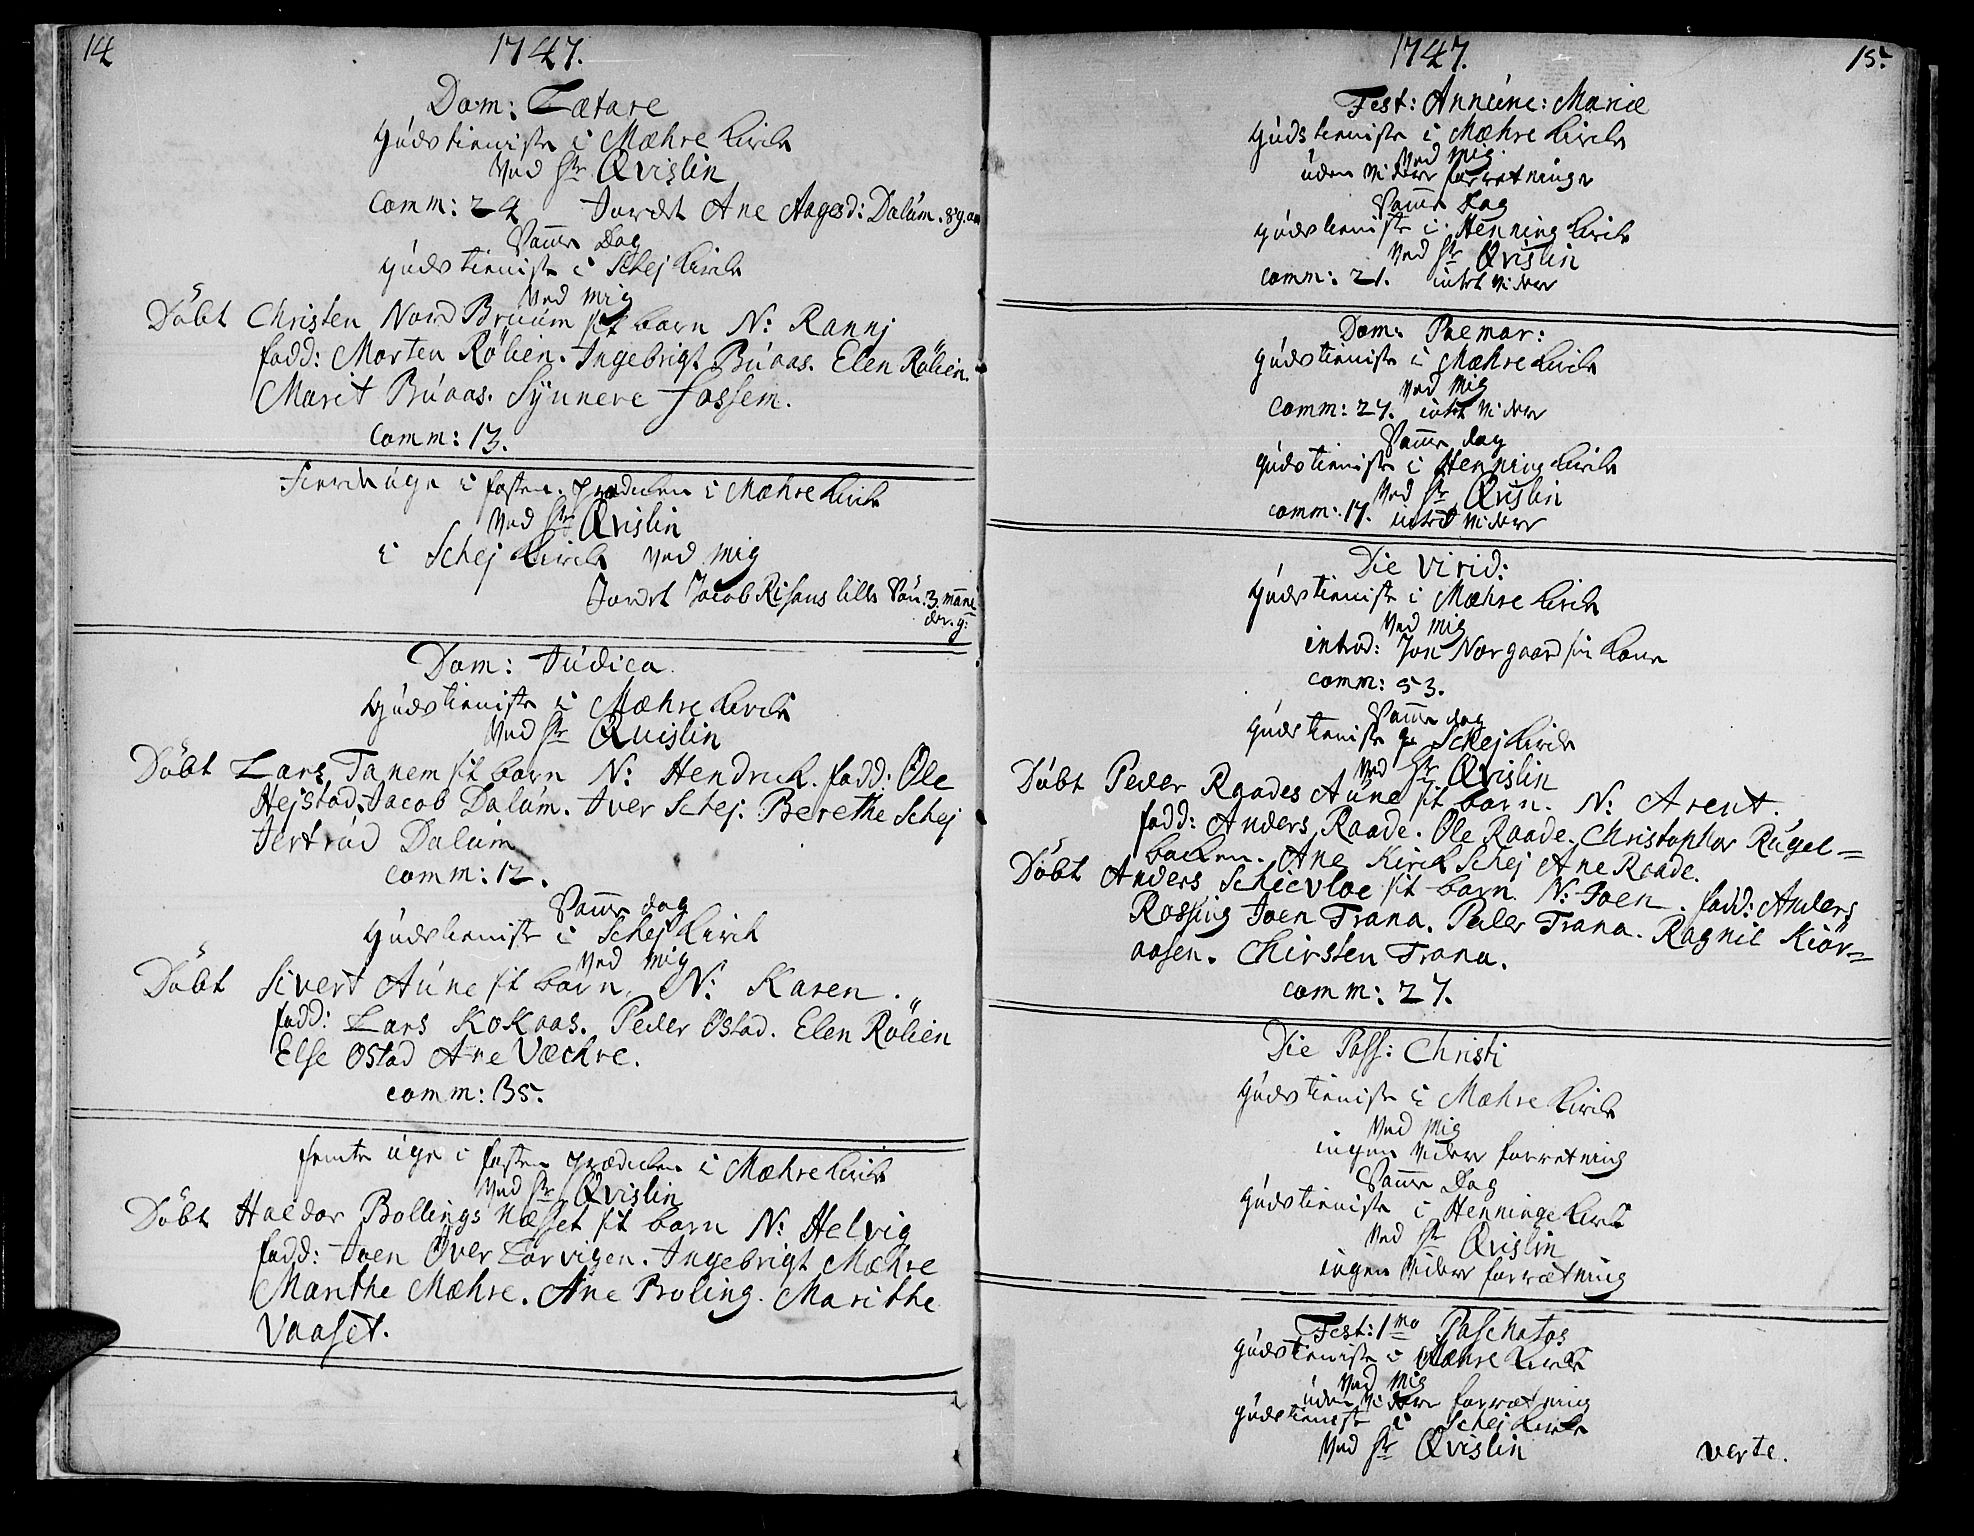 14
1747.
Dom: Lætare
Gúdstieniste i Mæhre Kirke
Ved Hr Qvislin
Comm: 24 Jordet Ane Aagesd: Dalúm. 89. aar
Samme Dag
Gúdstieniste i Schej Kirke
Ved mig
Döbt Christen Nord Brúúm sit barn N: Rannj
fadd: Morten Rölien. Ingebrigt Búaas. Elen Rölien.
Marit Búaas. Synnere Fossem.
Comm: 13.
Fierde úge i fasten. Prædiken i Mæhre Kirke
Ved Hr Qvislin
i Schej Kirke Ved mig
Jordet Jacob Risans lille Sön. 3. maane
der. g:
Dom: Júdica
Gúdstieniste i Mæhre Kirke
Ved Hr Quislin
Döbt Lars Tanem sit barn N: Hendrick. fadd: Ole
Hejstad. Jacob Dalúm. Iver Schej. Berethe Schej
Jertrúd Dalúm
Comm: 12.
Samme dag
Gúdstieniste i Schej Kirk
Ved mig
Döbt Sivert Aúne sit barn. N: Karen.
fadd: Lars Kokaas. Peder Ostad. Elen Rölien
Else Ostad Ane Væchre.
Comm: 35.
femte úge i fasten prædiken i Mæhre Kirke
Ved Hr Qvislin
Döbt Haldor Bollings Næsset sit barn N: Helvig
fadd: Joen Över Lorvigen. Ingebrigt Mæhre
Marithe Mæhre. Ane Proling. Marithe
Vaaset.
1747.
15.
Fest: Annúne: Mariæ
Gúdstieniste i Mæhre Kirke
Ved mig
úden videre forretninge
Samme Dag
Gúdstieniste i Henning Kirke
Ved Hr Qvislin
Comm: 21. intet videre
Dom: Palmar:
Gúdstieniste i Mæhre Kirke
Ved Mig
Comm: 27. intet videre
Samme dag
Gúdstieniste i Henning Kirke
Ved Hr Qvislin
comm: 17. intet videre
Die Virid:
Gúdstieniste i Mæhre Kirke
Ved Mig
introd: Jon Norgaard sin Kone
Comm: 53.
Samme dag
Gúdstieniste i Schej Kirke
Ved Hr Qvislin
Döbt Peder Raades Aúne sit barn. N: Arent.
fadd: Anders Raade. Ole Raade. Christopher Rúgel=
backen. Ane Kirck Schej Ane Raade.
Döbt Anders Schievloe sit barn N: Joen. fadd: Anders
Rossing Joen Trana. Peder Trana. Ragnil Kiör=
aasen. Chirsten Trana.
Comm: 27.
Die Pass: Christi
Gúdstieniste i Mæhre Kirke
Ved Mig
ingen videre forretning
Samme Dag
Gúdstieniste i Henninge Kirke
Ved Hr Qvislin
ingen videre forrætning
Fest: 1mo Paschatos
Gúdstieniste i Mæhre Kirke
Ved Mig
úden videre forrætning
Gúdstieniste i Schej Kirke
Ved Hr Qvislin
verte.